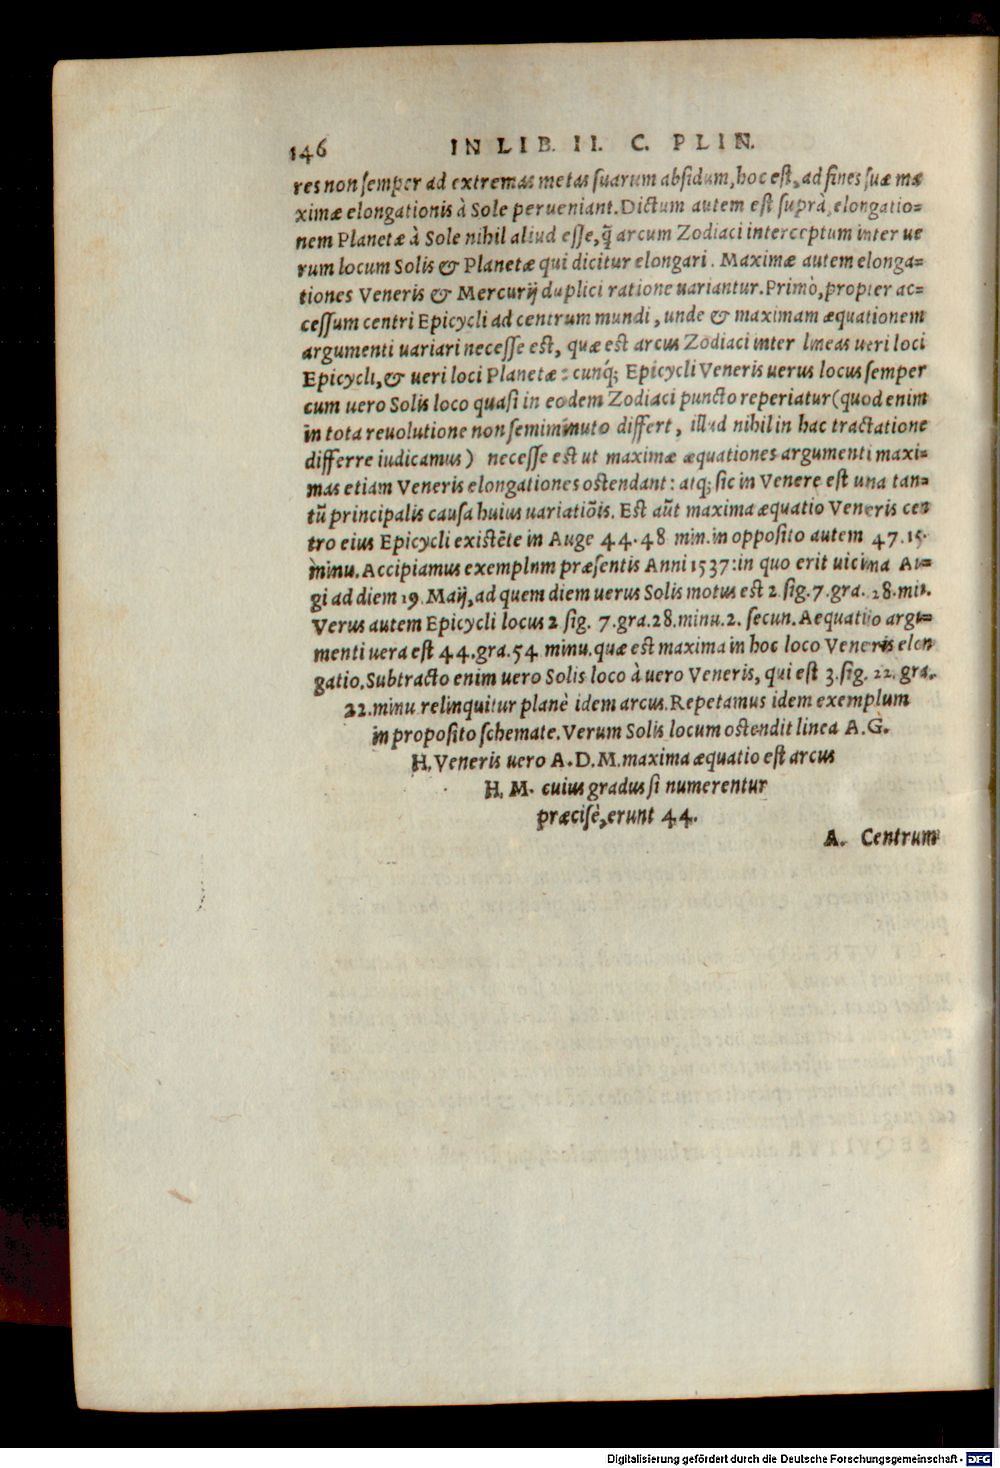 146 IN LIB. II. C. PLIN.
res non semper ad extremas metas suarum absidum, hoc est, ad fines suæ mæ
ximæ elongationis à Sole perueniant. Dictum autem est suprà, elongatio=
nem Planetæ à Sole nihil aliud esse, q̃ arcum Zodiaci interceptum inter ue
rum locum Solis & Planetæ qui dicitur elongari. Maximæ autem elonga=
tiones Veneris & Mercurij duplici ratione uariantur. Primò, propter ac=
cessum centri Epicycli ad centrum mundi, unde & maximam æquationem
argumenti uariari necesse est, quæ est arcus Zodiaci inter lineas ueri loci
Epicycli, & ueri loci Planetæ: cunq; Epicycli Veneris uerus locus semper
cum uero Solis loco quasi in eodem Zodiaci puncto reperiatur (quod enim
in tota reuolutione non semiminuto differt, illud nihil in hac tractatione
differre iudicamus) necesse est ut maximæ æquationes argumenti maxi=
mas etiam Veneris elongationes ostendant: atq; sic in Venere est una tan=
tũ principalis causa huius uariatiõis. Est aũt maxima æquatio Veneris cen
tro eius Epicycli existẽte in Auge 44. 48 min. in opposito autem 47. 15.
minu. Accipiamus exemplum præsentis Anni 1537: in quo erit uicima Au=
gi ad diem 19. Maij, ad quem diem uerus Solis motus est 2. sig. 7. gra. 28. min.
Verus autem Epicycli locus 2 sig. 7. gra. 28. minu. 2. secun. Aequatio argu=
menti uera est 44. gra. 54 minu. quæ est maxima in hoc loco Veneris elon
gatio. Subtracto enim uero Solis loco à uero Veneris, qui est 3. sig. 22. gra.
22. minu relinquitur planè idem arcus. Repetamus idem exemplum
in proposito schemate. Verum Solis locum ostendit linea A. G.
H. Veneris uero A. D. M. maxima æquatio est arcus
H. M. cuius gradus si numerentur
præcisè, erunt 44.
A. Centrum
Digitalisierung gefördert durch die Deutsche Forschungsgemeinschaft - DFG